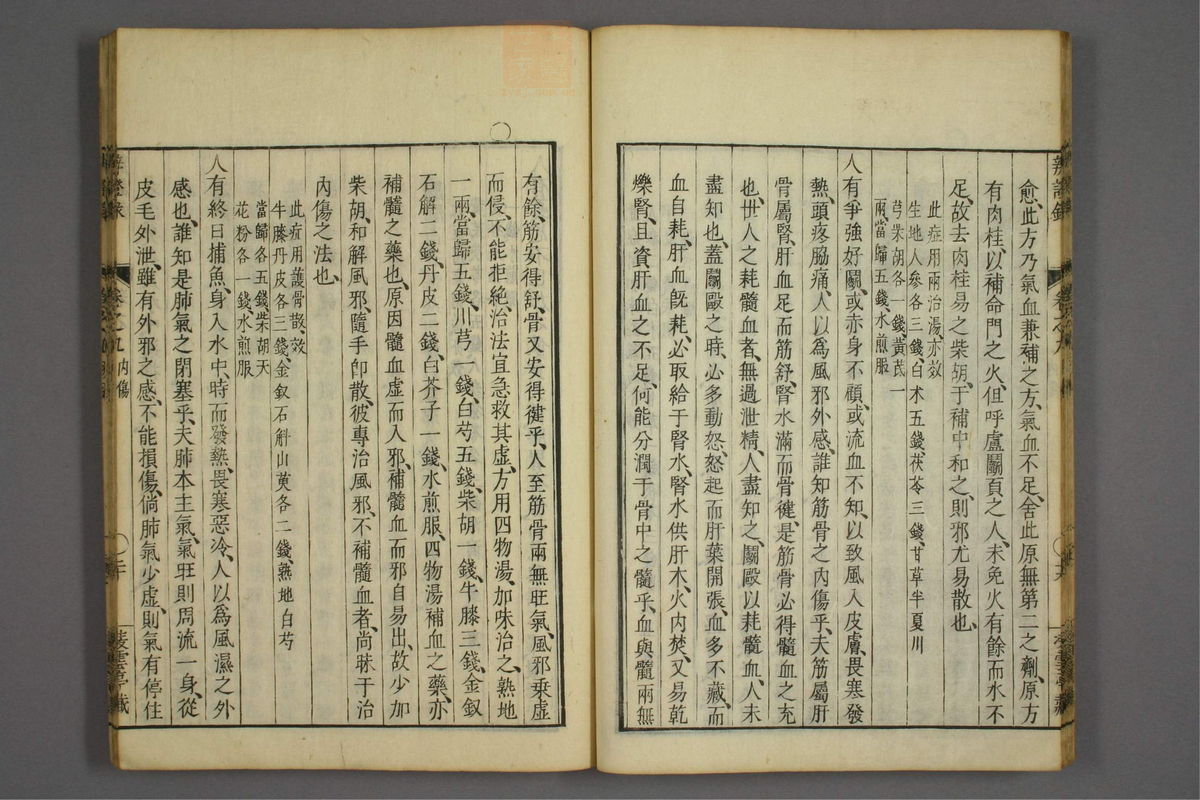 愈、此方乃氣血兼補之方、氣血不足、舍此原無第二之劑、原方
有肉桂、以補命門之火、但呼盧鬬頁之人、未免火有餘而水不
足、故去肉桂易之柴胡、于補中和之、則邪尤易散也、
此症用兩治湯、亦效
生地人參各三錢、白术五錢、茯苓三錢、甘草半夏川
芎柴胡各一錢、黃芪一
兩、當歸五錢、水煎服
人有爭強好鬬、或赤身不顧、或流血不知、以致風入皮膚、畏寒發
熱、頭疼脇痛、人以為風邪外感、誰知筋骨之內傷乎、夫筋屬肝
骨屬腎、肝血足而筋舒、腎水滿而骨健、是筋骨必得髓血之充
也、世人之耗髓血者、無過泄精、人盡知之、鬬毆以耗髓血、人未
盡知也、蓋鬬毆之時、必多動怒、怒起而肝葉開張、血多不藏、而
血自耗、肝血旣耗、必取給于腎水、腎水供肝木、火內焚、又易乾
爍腎、且資肝血之不足、何能分潤于骨中之髓乎、血與髓兩無
有餘、筋安得舒、骨又安得健乎、人至筋骨兩無旺氣、風邪乘虛
而侵、不能拒絕、治法宜急救其虛、方用四物湯、加味治之、熟地
一兩、當歸五錢、川芎一錢、白芍五錢、柴胡一錢、牛膝三錢、金釵
石斛二錢、丹皮二錢、白芥子一錢、水煎服、四物湯補血之藥、亦
補髓之藥也、原因髓血虛而入邪、補髓血而邪自易出、故少加
柴胡、和解風邪、隨手卽散、彼專治風邪、不補髓血者、尚昧于治
內傷之法也、
此症用護骨散、效
牛膝丹皮各三錢、金釵石斛山萸各二錢熟地白芍
當歸各五錢、柴胡天
花粉各一錢水煎服
人有終日捕魚、身入水中、時而發熱、畏寒惡冷、人以為風濕之外
感也、誰知是肺氣之閉塞乎、夫肺本主氣、氣旺則周流一身、從
皮毛外泄、雖有外邪之感、不能損傷、倘肺氣少虛、則氣有停住